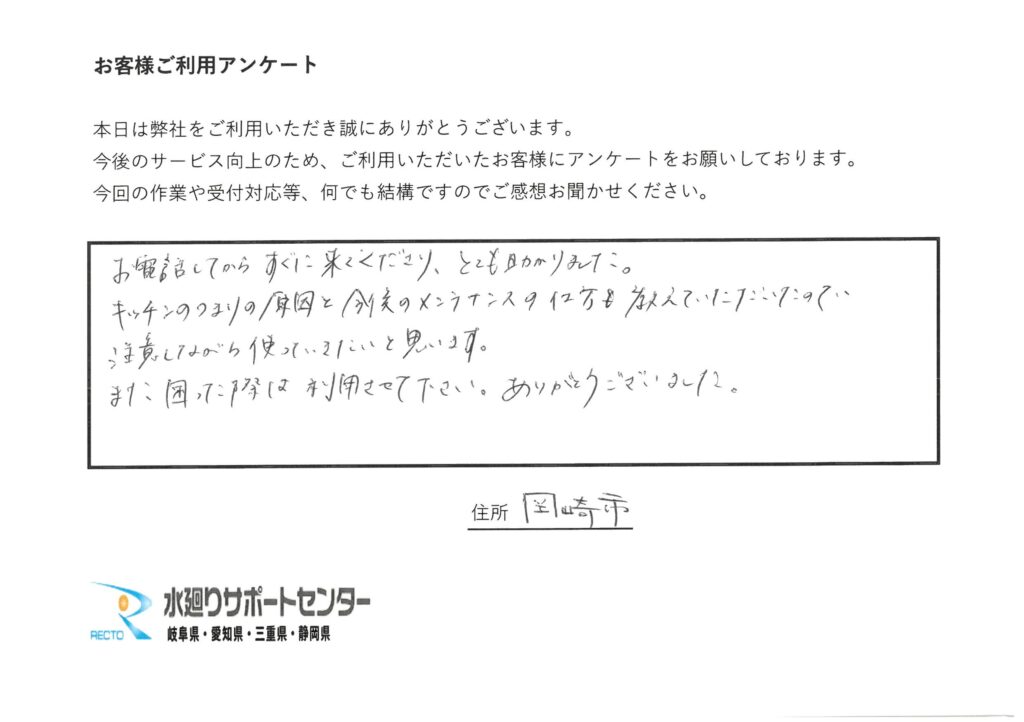 お客様ご利用アンケート
本日は弊社をご利用いただき誠にありがとうございます。
今後のサービス向上のため、ご利用いただいたお客様にアンケートをお願いしております。
今回の作業や受付対応等、何でも結構ですのでご感想お聞かせください。
お電話してから すぐに来てくださり、とても助かりました。
キッチンのつまりの原因と今後のメンテナンスの仕方も教えていただいたので
注意しながら使っていきたいと思います。
また困った際は利用させて下さい。ありがとうございました。
住所 岡崎市
水廻りサポートセンター
RECTO 岐阜県・愛知県・三重県・静岡県